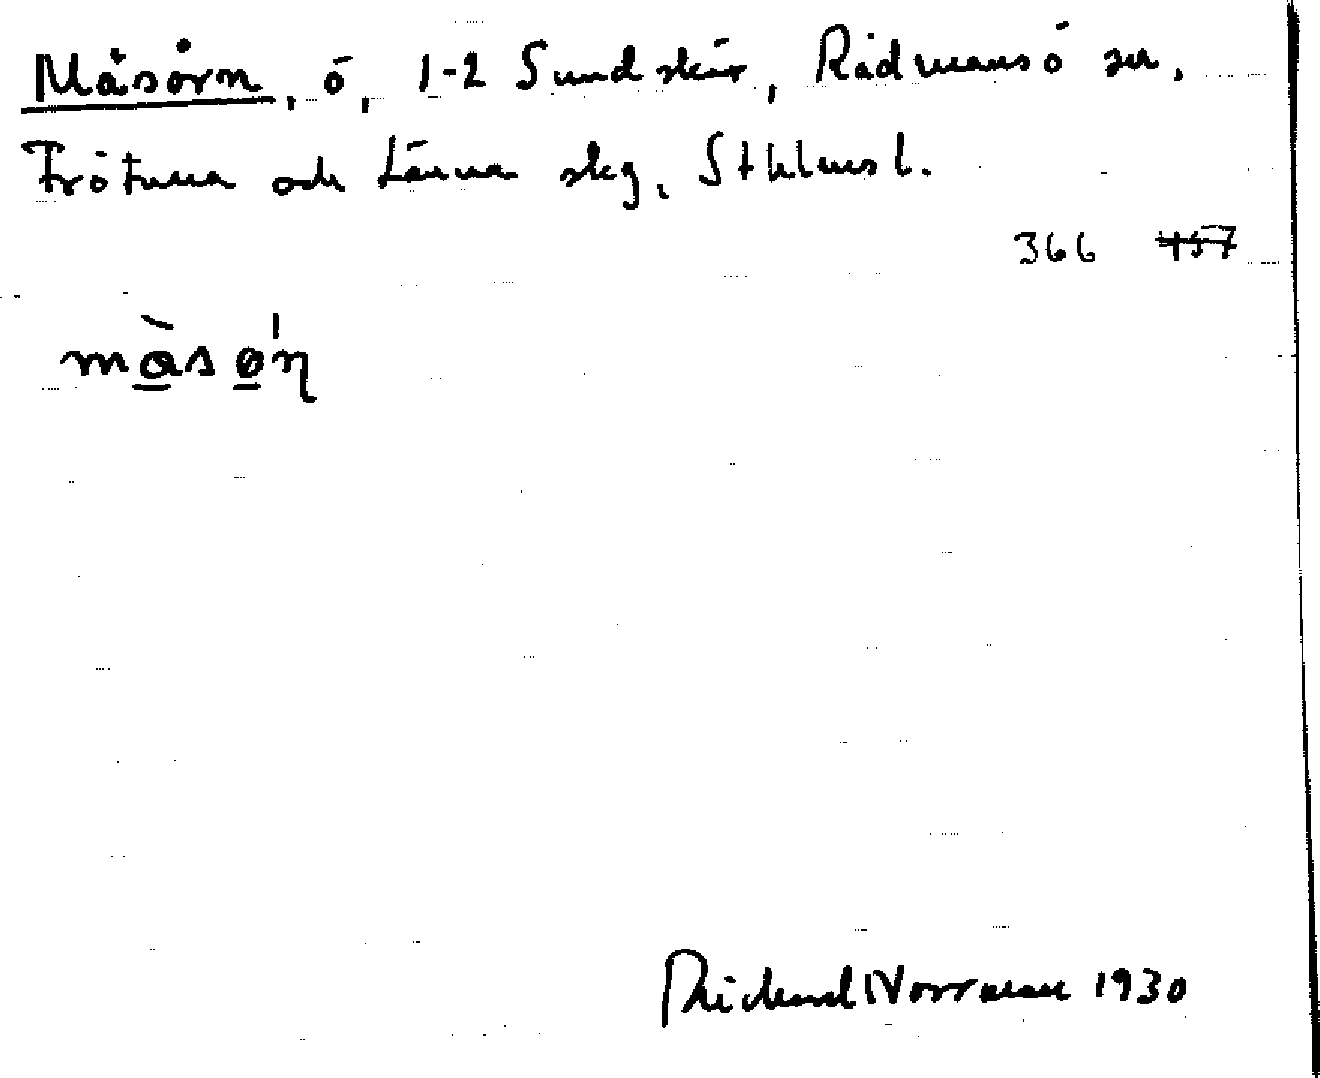 Måsörn, ö, 1-2 Sundskär, Rådmansö sn,
Frötuna och Länna skg, Sthlms l.
366 457
màsø̀'ɳ
Rickard Norrman 1930